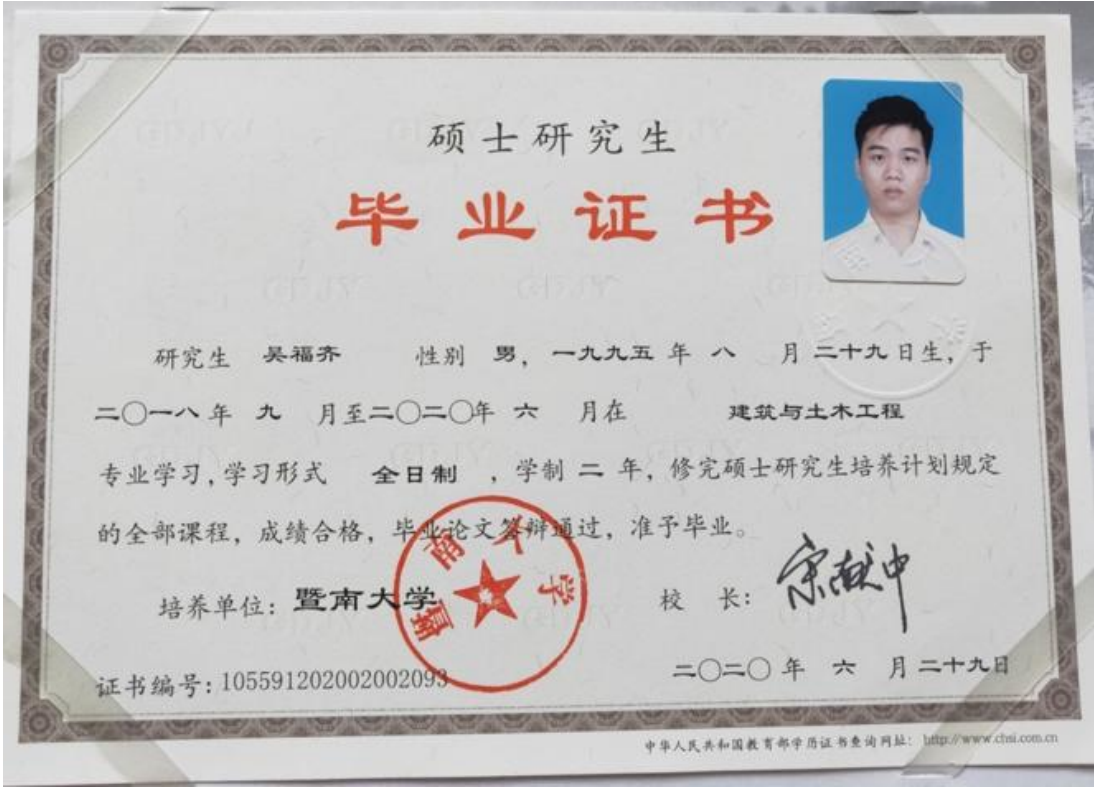 硕士研究生
毕业证书
研究生 吴福齐 性别 男，一九九五 年 八 月 二十九日生，于
二〇一八年 九 月至二〇二〇年 六 月在 建筑与土木工程
专业学习，学习形式 全日制 ，学制 二 年，修完硕士研究生培养计划规定
的全部课程，成绩合格，毕业论文答辩通过，准予毕业。
培养单位：暨南大学 校 长：宋献中
暨南大学
证书编号：105591202002002093 二〇二〇 年 六 月二十九日
中华人民共和国教育部学历证书查询网址：http://www.chsi.com.cn